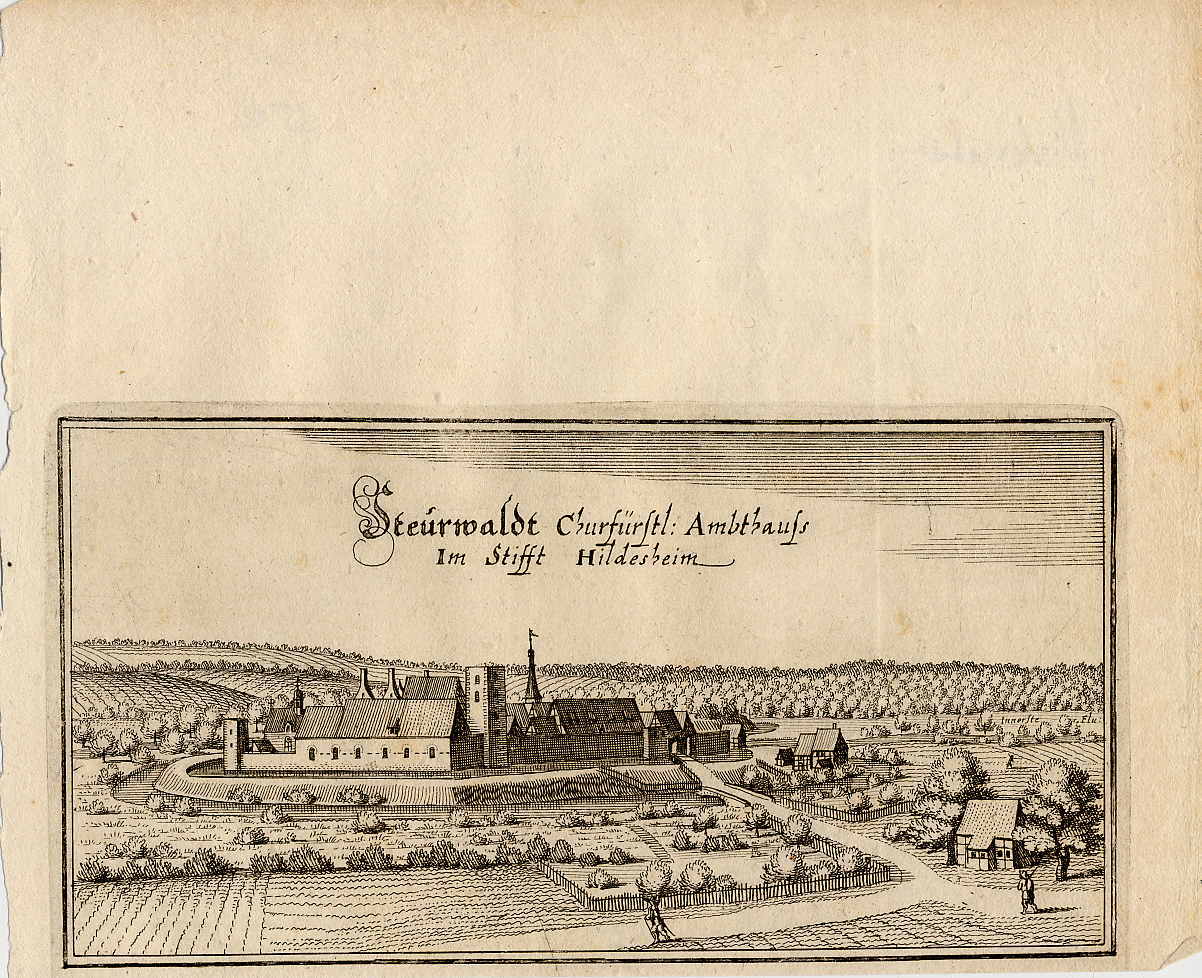 Steürwaldt Churfürstl: Ambthauſs
Im Stifft Hildesheim
Innerste Flu: